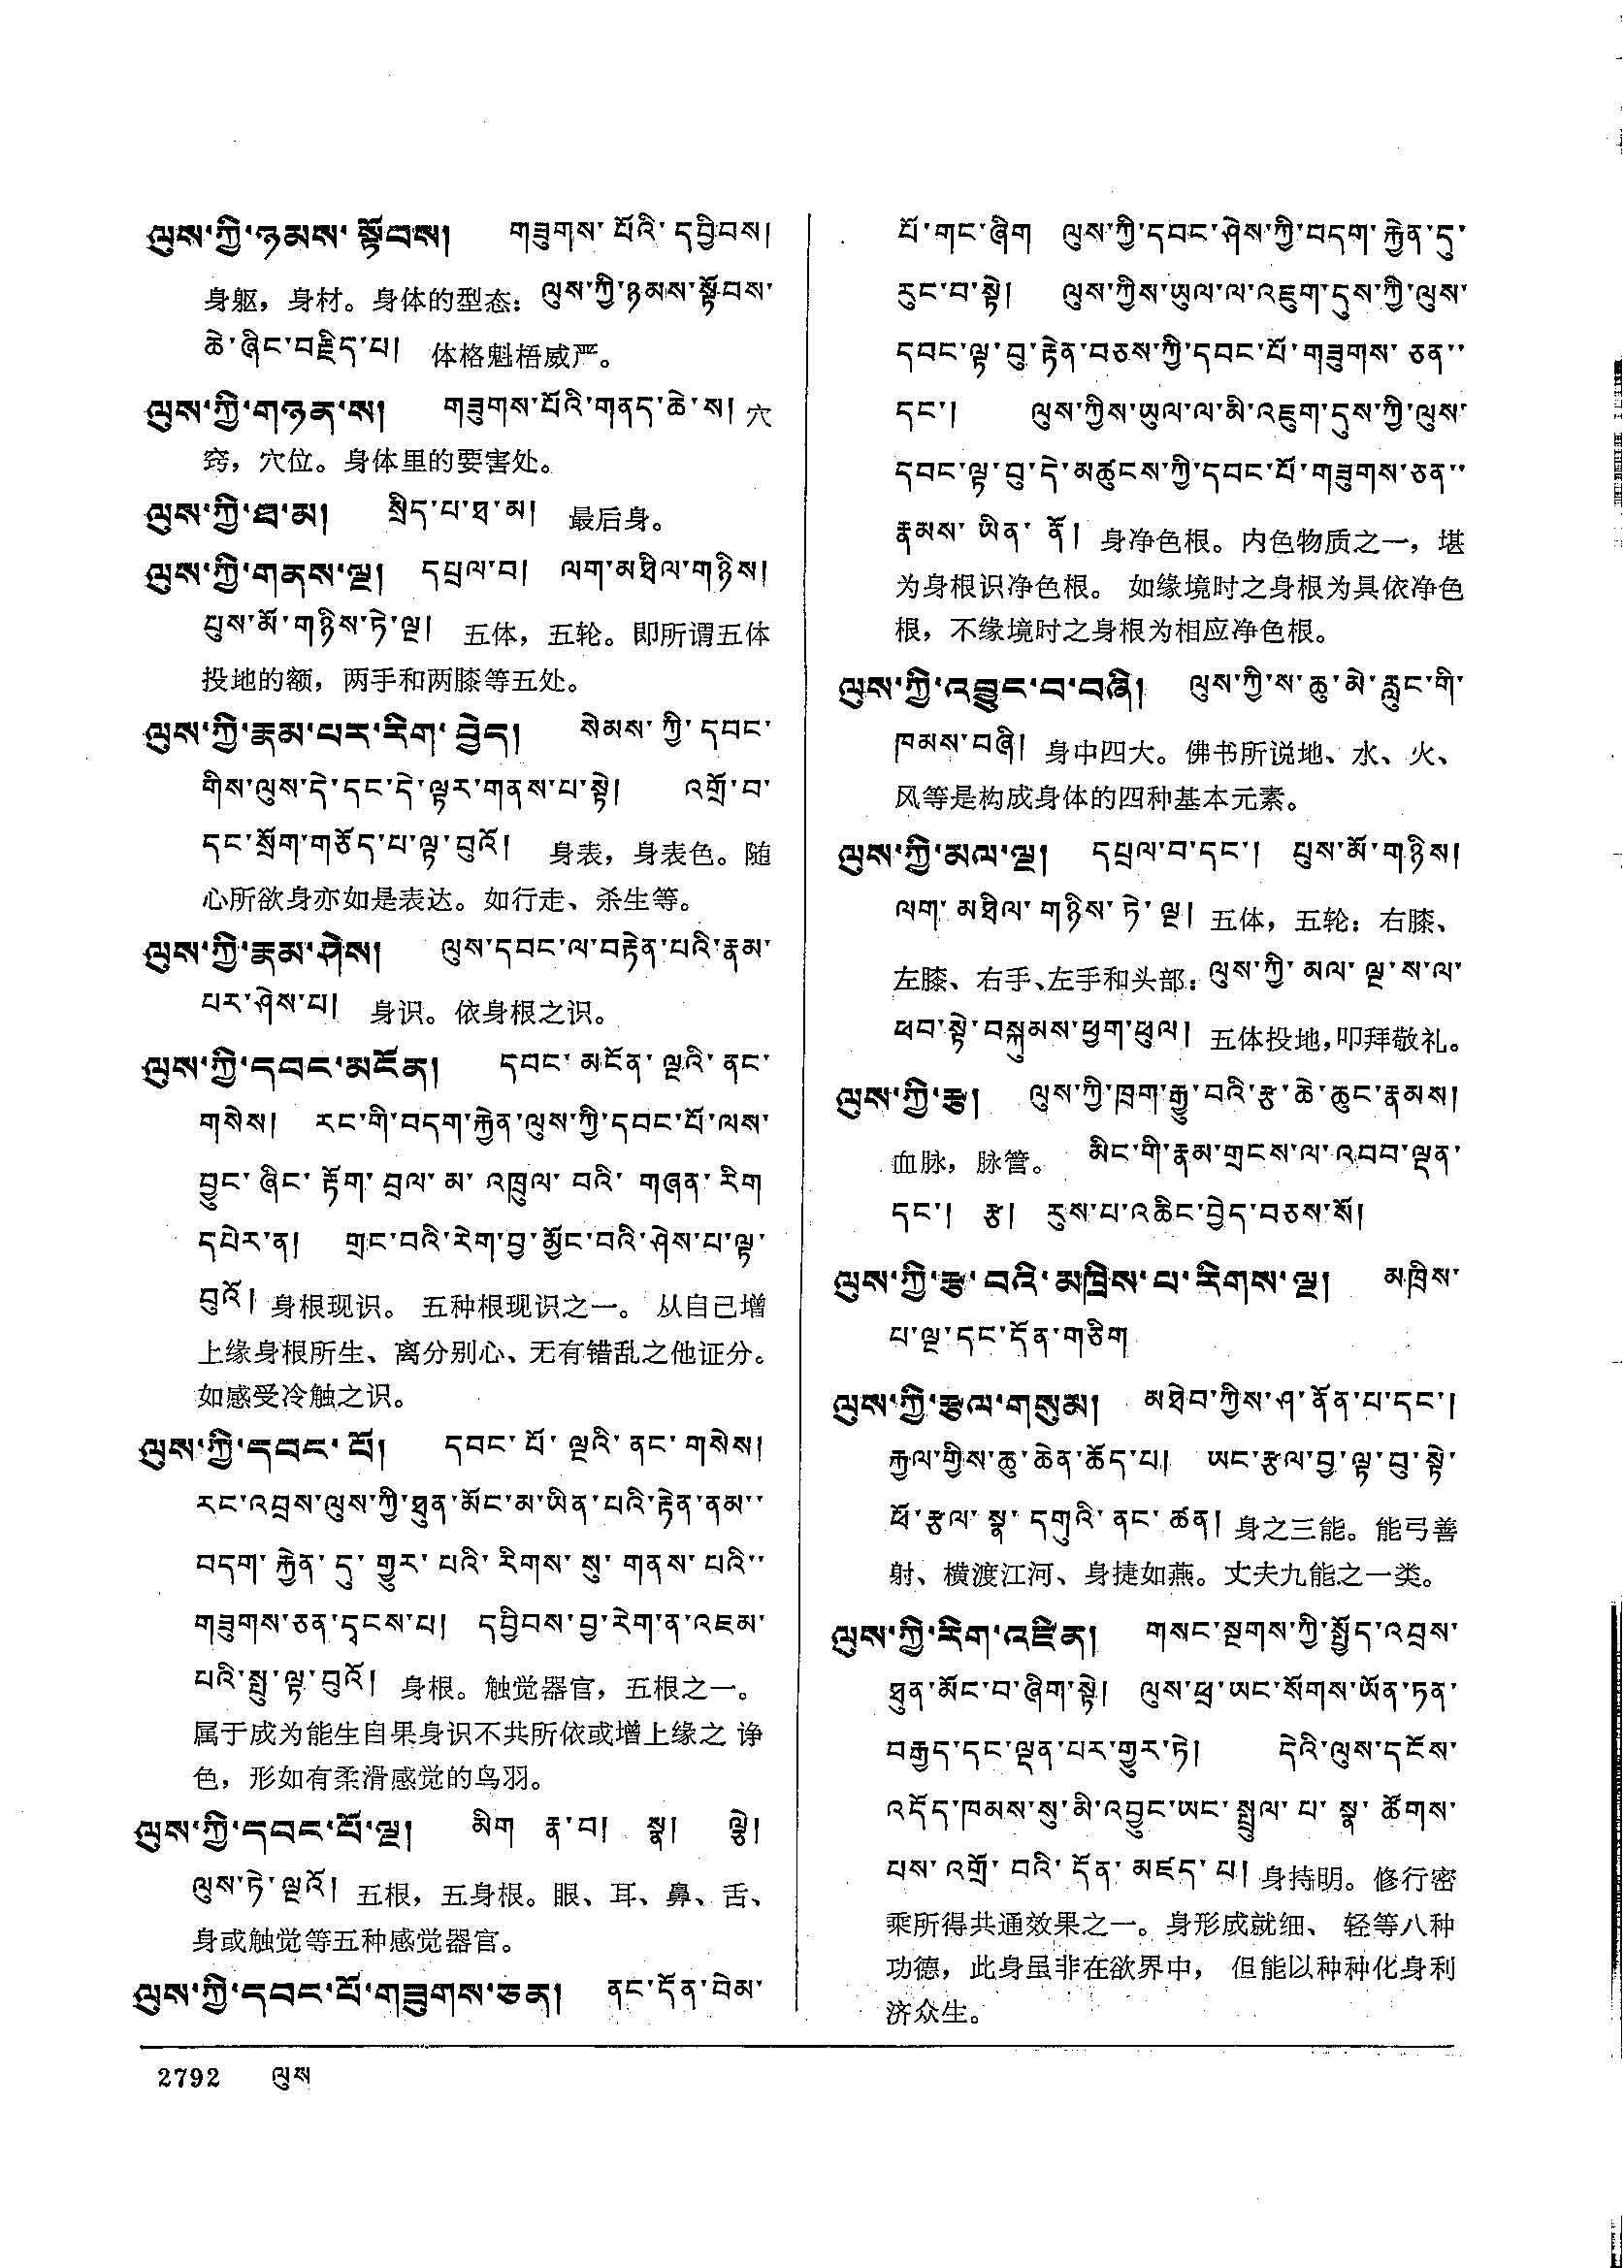 ལུས་ཀྱི་ཉམས་སྟོབས། གཟུགས་པོའི་དབྱིབས།
身躯，身材。身体的型态：ལུས་ཀྱི་ཉམས་སྟོབས་
ཆེ་ཞིང་བརྗིད་པ། 体格魁梧威严。
ལུས་ཀྱི་གཉན་ས། གཟུགས་པོའི་གནད་ཆེ་ས། 穴
窍，穴位。身体里的要害处。
ལུས་ཀྱི་ཐ་མ། སྲིད་པ་ཐ་མ། 最后身。
ལུས་ཀྱི་གནས་ལྔ། དཔྲལ་བ། ལག་མཐིལ་གཉིས།
པུས་མོ་གཉིས་ཏེ་ལྔ། 五体，五轮。即所谓五体
投地的额，两手和两膝等五处。
ལུས་ཀྱི་རྣམ་པར་རིག་བྱེད། སེམས་ཀྱི་དབང་
གིས་ལུས་དེ་དང་དེ་ལྟར་གནས་པ་སྟེ། འགྲོ་བ་
དང་སྲོག་གཅོད་པ་ལྟ་བུའོ། 身表，身表色。随
心所欲身亦如是表达。如行走、杀生等。
ལུས་ཀྱི་རྣམ་ཤེས། ལུས་དབང་ལ་བརྟེན་པའི་རྣམ་
པར་ཤེས་པ། 身识。依身根之识。
ལུས་ཀྱི་དབང་མངོན། དབང་མངོན་ལྔའི་ནང་
གསེས། རང་གི་བདག་རྐྱེན་ལུས་ཀྱི་དབང་པོ་ལས་
བྱུང་ཞིང་རྟོག་བྲལ་མ་འཁྲུལ་བའི་གཞན་རིག
དཔེར་ན། གྲང་བའི་རེག་བྱ་མྱོང་བའི་ཤེས་པ་ལྟ་
བུའོ། 身根现识。 五种根现识之一。 从自己增
上缘身根所生、离分别心、无有错乱之他证分。
如感受冷触之识。
ལུས་ཀྱི་དབང་པོ། དབང་པོ་ལྔའི་ནང་གསེས།
རང་འབྲས་ལུས་ཀྱི་ཐུན་མོང་མ་ཡིན་པའི་རྟེན་ནམ་་
བདག་རྐྱེན་དུ་གྱུར་པའི་རིགས་སུ་གནས་པའི་་
གཟུགས་ཅན་དྭངས་པ། དབྱིབས་བྱ་རེག་ན་འཇམ་
པའི་སྤུ་ལྟ་བུའོ། 身根。触觉器官，五根之一。
属于成为能生自果身识不共所依或增上缘之 诤
色，形如有柔滑感觉的鸟羽。
ལུས་ཀྱི་དབང་པོ་ལྔ། མིག རྣ་བ། སྣ། ལྕེ།
ལུས་ཏེ་ལྔའོ། 五根，五身根。眼、耳、鼻、舌、
身或触觉等五种感觉器官。
ལུས་ཀྱི་དབང་པོ་གཟུགས་ཅན། ནང་དོན་བེམ་
པོ་གང་ཞིག ལུས་ཀྱི་དབང་ཤེས་ཀྱི་བདག་རྐྱེན་དུ་
རུང་བ་སྟེ། ལུས་ཀྱིས་ཡུལ་ལ་འཇུག་དུས་ཀྱི་ལུས་
དབང་ལྟ་བུ་རྟེན་བཅས་ཀྱི་དབང་པོ་གཟུགས་ཅན་་
དང་། ལུས་ཀྱིས་ཡུལ་ལ་མི་འཇུག་དུས་ཀྱི་ལུས་
དབང་ལྟ་བུ་དེ་མཚུངས་ཀྱི་དབང་པོ་གཟུགས་ཅན་་
རྣམས་ཡིན་ནོ། 身净色根。内色物质之一，堪
为身根识净色根。 如缘境时之身根为具依净色
根，不缘境时之身根为相应净色根。
ལུས་ཀྱི་འབྱུང་བ་བཞི། ལུས་ཀྱི་ས་ཆུ་མེ་རླུང་གི་
ཁམས་བཞི། 身中四大。佛书所说地、水、火、
风等是构成身体的四种基本元素。
ལུས་ཀྱི་མལ་ལྔ། དཔྲལ་བ་དང་། པུས་མོ་གཉིས།
ལག་མཐིལ་གཉིས་ཏེ་ལྔ། 五体，五轮：右膝、
左膝、右手、左手和头部：ལུས་ཀྱི་མལ་ལྔ་ས་ལ་
ཕབ་སྟེ་བསྐུམས་ཕྱག་ཕུལ། 五体投地，叩拜敬礼。
ལུས་ཀྱི་རྩ། ལུས་ཀྱི་ཁྲག་རྒྱུ་བའི་རྩ་ཆེ་ཆུང་རྣམས།
血脉，脉管。 མིང་གི་རྣམ་གྲངས་ལ་འབབ་ལྡན་
དང་། རྩ། རུས་པ་འཆིང་བྱེད་བཅས་སོ།
ལུས་ཀྱི་རྩ་བའི་མཁྲིས་པ་རིགས་ལྔ། མཁྲིས་
པ་ལྔ་དང་དོན་གཅིག
ལུས་ཀྱི་རྩལ་གསུམ། མཐེབ་ཀྱིས་ཤ་ནོན་པ་དང་།
རྐྱལ་གྱིས་ཆུ་ཆེན་ཆོད་པ། ཡང་རྩལ་བྱ་ལྟ་བུ་སྟེ་
ཕོ་རྩལ་སྣ་དགུའི་ནང་ཚན། 身之三能。能弓善
射、横渡江河、身捷如燕。丈夫九能之一类。
ལུས་ཀྱི་རིག་འཛིན། གསང་སྔགས་ཀྱི་སྤྱོད་འབྲས་
ཐུན་མོང་བ་ཞིག་སྟེ། ལུས་ཕྲ་ཡང་སོགས་ཡོན་ཏན་
བརྒྱད་དང་ལྡན་པར་གྱུར་ཏེ། དེའི་ལུས་དངོས་
འདོད་ཁམས་སུ་མི་འབྱུང་ཡང་སྤྲུལ་པ་སྣ་ཚོགས་
པས་འགྲོ་བའི་དོན་མཛད་པ། 身持明。修行密
乘所得共通效果之一。身形成就细、 轻等八种
功德，此身虽非在欲界中， 但能以种种化身利
济众生。
2792 ལུས